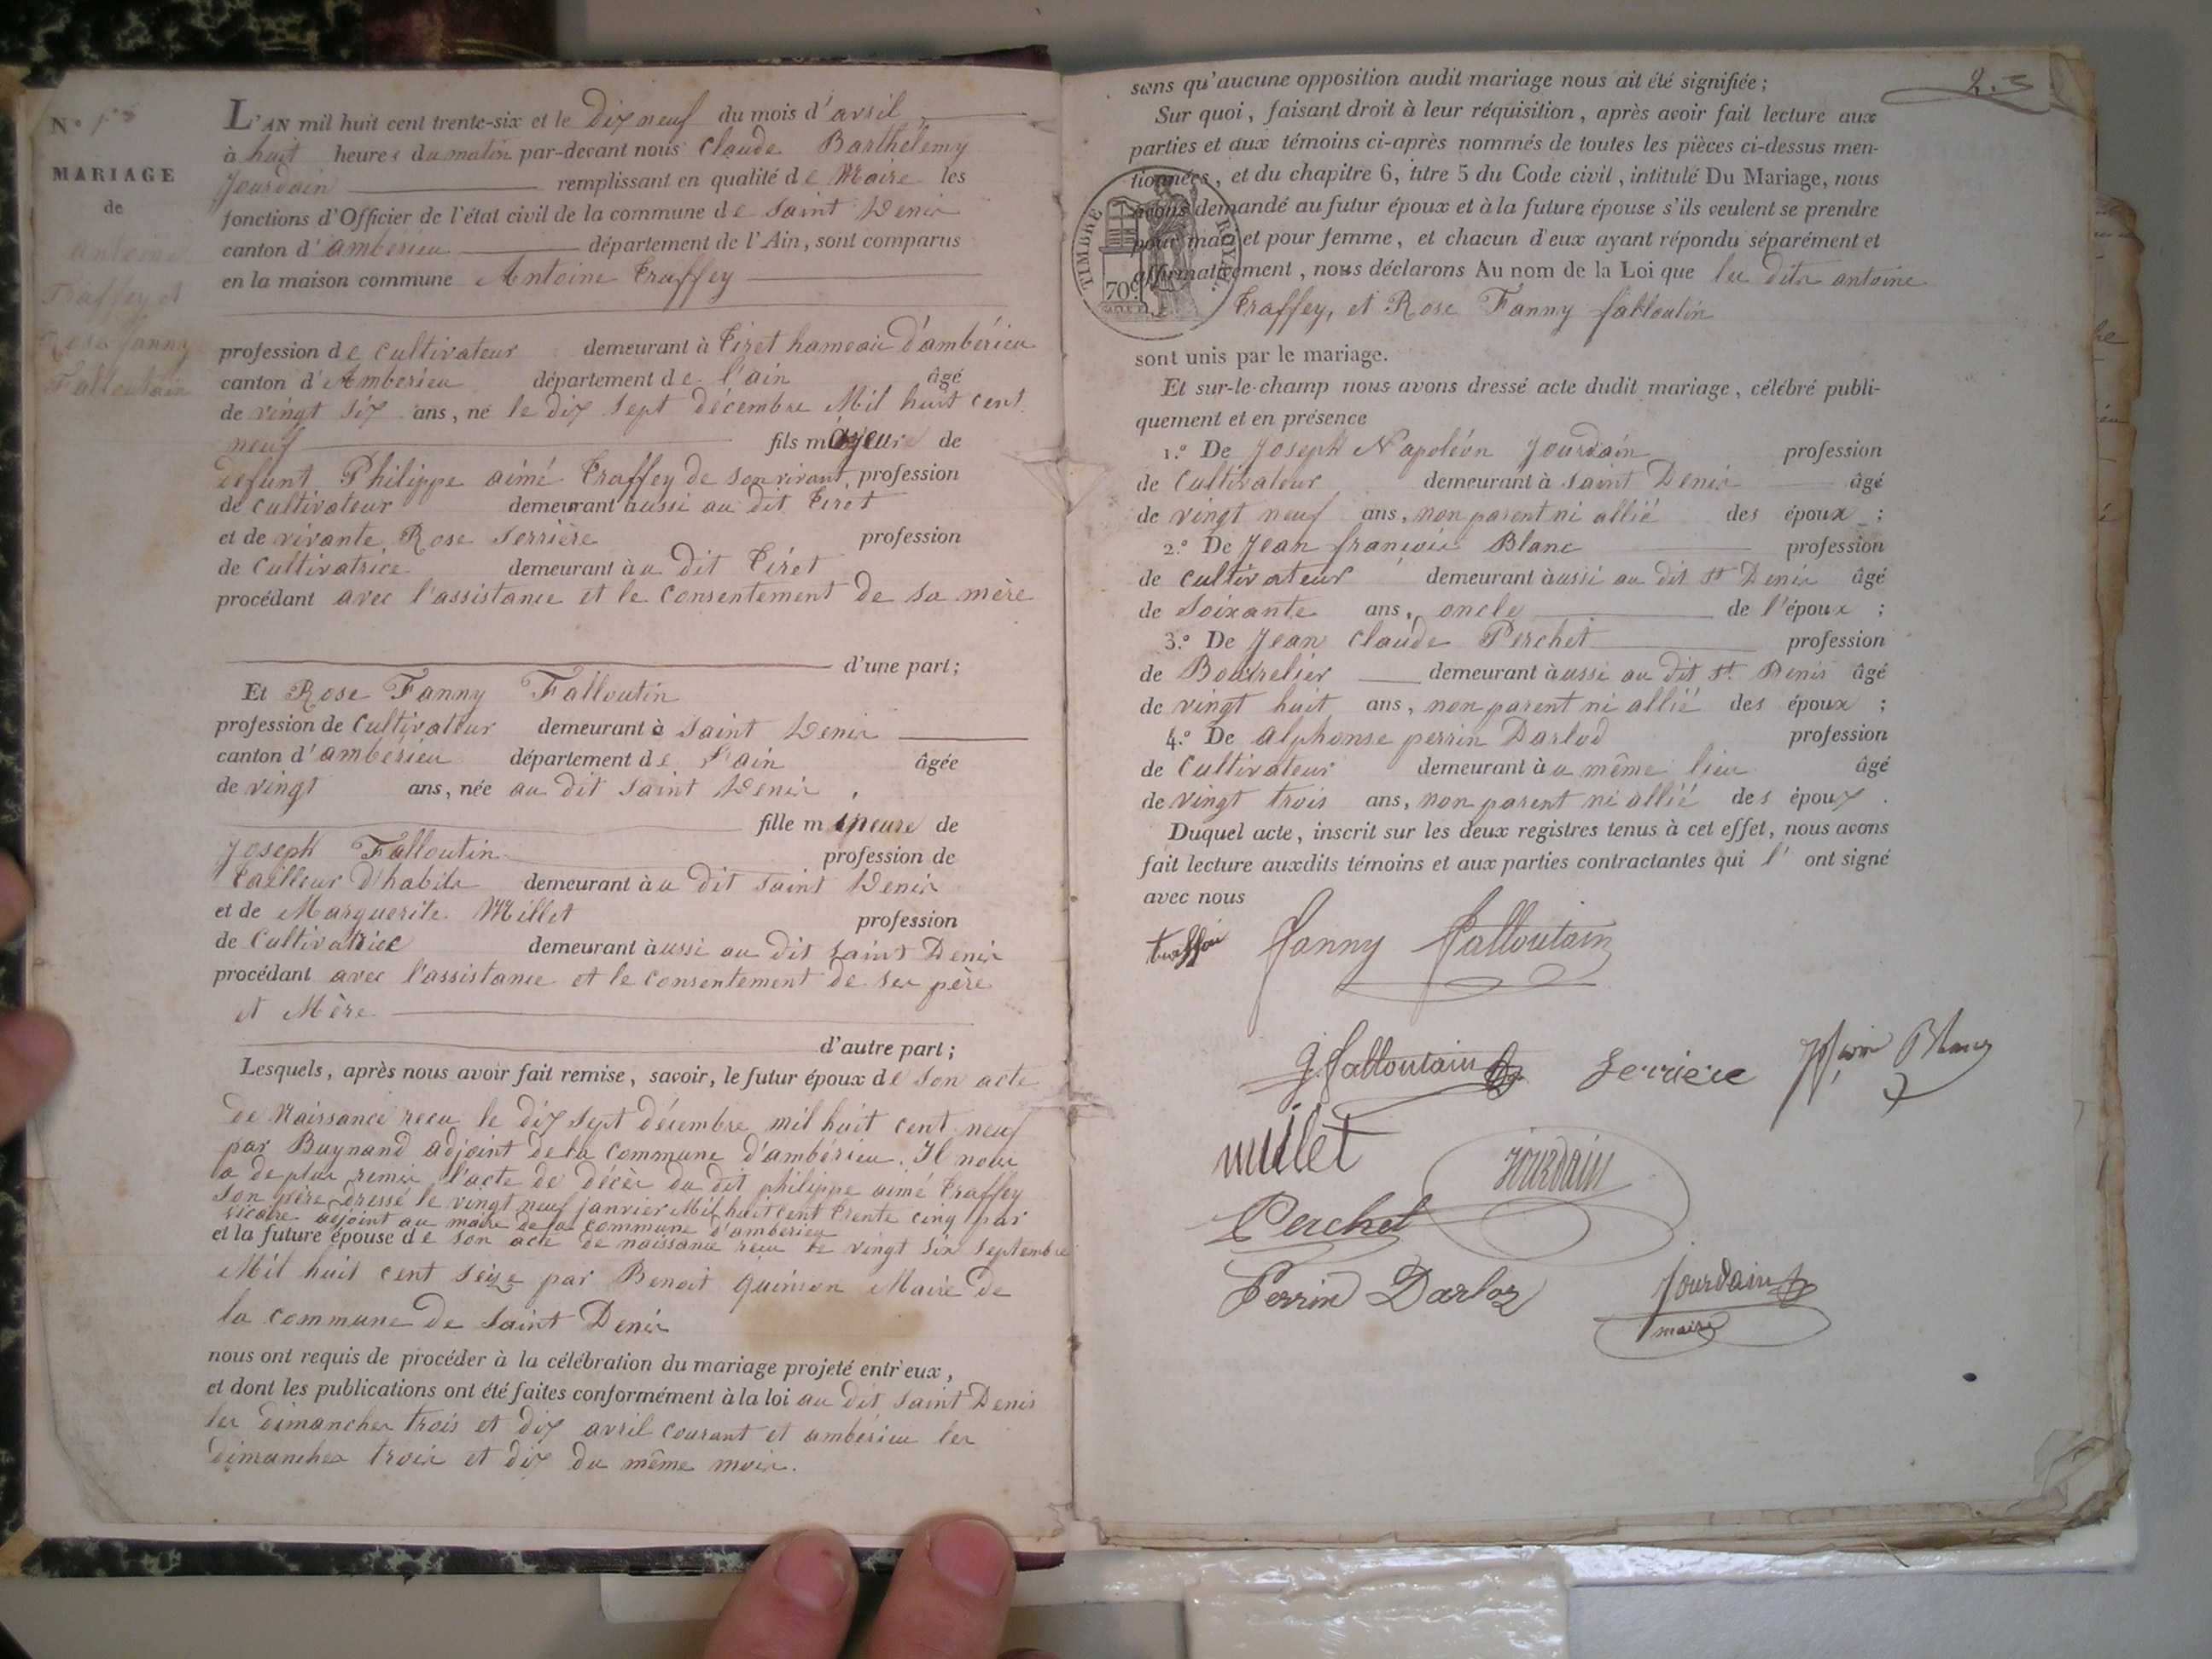 N.º
MARIAGE
de
Antoine
Traffey et
Rose fanny
Falloutain
L'AN mil huit cent trente-six et le Dix neuf du mois d'avril
à huit heures du matin par-devant nous Claude Barthélemy
Jourdain remplissant en qualité de Maire les
fonctions d'Officier de l'état civil de la commune de Saint Denis
canton d'ambérieu département de l'Ain, sont comparus
en la maison commune Antoine Traffey
profession de cultivateur demeurant à Tiret hameau d'ambérieu
canton d'Amberieu département de l'ain âgé
de vingt six ans, né le dix sept décembre Mil huit cent
neuf fils majeur de
defunt Philippe aimé Traffey de son vivant, profession
de cultivateur demeurant aussi au dit Tiret
et de vivante Rose Serrière profession
de Cultivatrice demeurant à u dit Tiret
procédant avec l'assistance et le consentement de sa mère
d'une part;
Et Rose Fanny Falloutin
profession de Cultivateur demeurant à Saint Denis
canton d'ambérieu département de l'ain âgée
de vingt ans, née au dit Saint Denis
fille mineure de
Joseph Falloutin profession de
Tailleur d'habits demeurant à u dit Saint Denis
et de Marguerite Millet profession
de Cultivatrice demeurant à ussi au dit Saint Denis
procédant avec l'assistance et le consentement de ses père
et Mère
d'autre part;
Lesquels, après nous avoir fait remise, savoir, le futur époux de son acte
de Naissance recu le dix sept décembre mil huit cent neuf
par Buynand adjoint de la commune d'ambérieu. Il nous
a de plus remis l'acte de décès du dit philippe aimé Traffey
son père dressé le vingt neuf janvier Mil huit cent trente cinq par
vicaire adjoint au maire de la commune d'amberieu
et la future épouse de son acte de naissance recu le vingt six septembre
Mil huit cent seize par Benoit quinson Maire de
la commune de Saint Denis
nous ont requis de procéder à la célébration du mariage projeté entr'eux,
et dont les publications ont été faites conformément à la loi au dit Saint Denis
les dimanches trois et dix avril courant et ambérieu les
dimanches trois et dix du même mois.
2.3
sans qu'aucune opposition audit mariage nous ait été signifiée;
Sur quoi, faisant droit à leur réquisition, après avoir fait lecture aux
parties et aux témoins ci-après nommés de toutes les pièces ci-dessus men-
tionnées, et du chapitre 6, titre 5 du Code civil, intitulé Du Mariage, nous
avons demandé au futur époux et à la future épouse s'ils veulent se prendre
pour mari et pour femme, et chacun d'eux ayant répondu séparément et
affirmativement, nous déclarons Au nom de la Loi que les dits antoine
Traffey, et Rose Fanny falloutin
TIMBRE ROYAL
70
sont unis par le mariage.
Et sur-le-champ nous avons dressé acte dudit mariage, célébré publi-
quement et en présence
1.º De Joseph Napoléon Jourdain profession
de Cultivateur demeurant à Saint Denis âgé
de vingt neuf ans, non parent ni allié des époux ;
2.º De Jean françois Blanc profession
de cultivateur demeurant à ussi au dit St Denis âgé
de Soixante ans, oncle de l'époux ;
3.º De Jean Claude Perchet profession
de Bourrelier demeurant à ussi au dit St Denis âgé
de vingt huit ans, non parent ni allié des époux ;
4.º De alphonse perrin Darlod profession
de Cultivateur demeurant à u même lieu âgé
de vingt trois ans, non parent ni allié des époux.
Duquel acte, inscrit sur les deux registres tenus à cet effet, nous avons
fait lecture auxdits témoins et aux parties contractantes qui l' ont signé
avec nous
Fanny Falloutain
J. falloutain Serriere Blanc
millet Jourdain
Perchet
Perrin Darloz Jourdain
maire